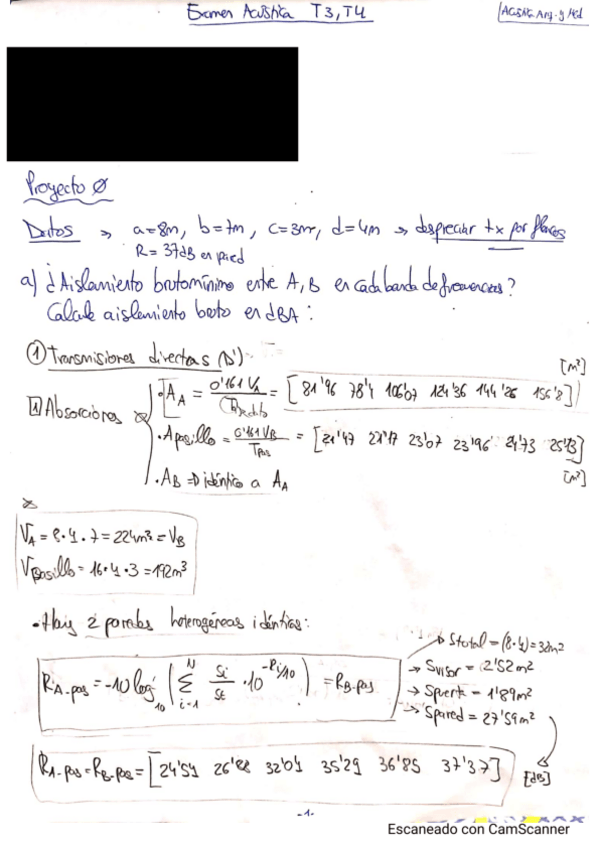 Examen Acústica T3, T4
Acústica Arq. y Mcl
Proyecto Ø
Datos → a=8m, b=7m, c=3m, d=4m → despreciar tx por flancos
R = 37dB en pared
a) ¿Aislamiento bruto mínimo entre A, B en cada banda de frecuencias?
Calcule aislamiento bruto en dBA:
① Transmisiones directas (D')
[m²]
1 Absorciones
· A_A = 0'161 V_A / = [81'96 78'4 106'07 124'36 144'26 156'8]
· A pasillo = 0'161 V_B / T_pas = [21'47 22'17 23'07 23'96 24'73 25'73]
[m²]
· A_B ⇒ idéntico a A_A
V_A = 8·4·7 = 224m³ = V_B
V_Pasillo = 16·4·3 = 192m³
· Hay 2 paredes heterogéneas idénticas:
→ Stotal = (8·4) = 32m²
R_A-pas = -10 log₁₀ ( Σ_{i=1}^{N} Si/St · 10^{-Ri/10} ) = R_B-pas
→ Svisor = 2'52m²
→ Spuerta = 1'89m²
→ Spared = 27'59m²
R_A-pas = R_B-pas = [24'54 26'88 32'04 35'29 36'85 37'37] [dB]
-1-
Escaneado con CamScanner